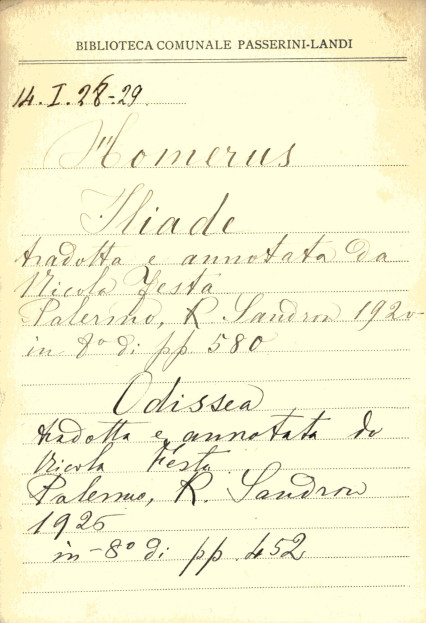 BIBLIOTECA COMUNALE PASSERINI-LANDI
14.I.28=29
Homerus
Iliade
tradotta e annotata da
Nicola Festa
Palermo, R. Sandron 1920
in 8º di pp 580
Odissea
tradotta e annotata da
Nicola Festa
Palermo, R. Sandron
1926
in-8º di pp. 452